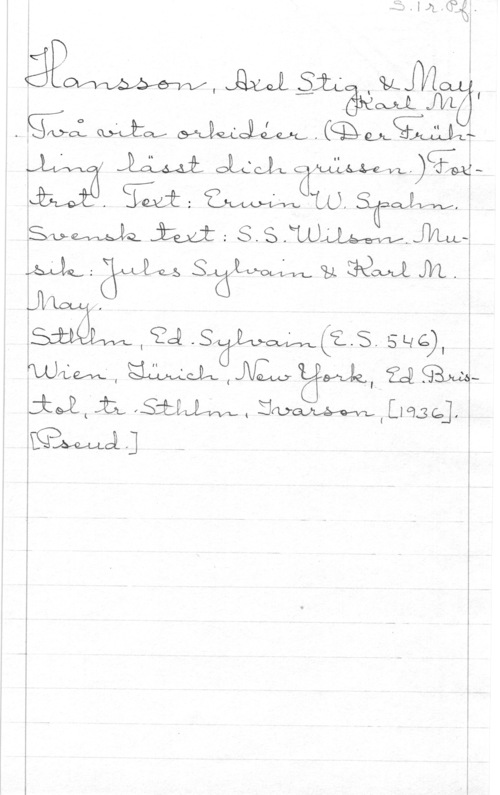 S. 1 r. Pf.
Hansson, Axel Stig, & May,
Karl M
Två vita orkidéer. (Der Früh-
ling lässt dich grüssen.) Fox-
trot. Text: Erwin W. Spahn.
Svensk text: S.S. Wilson. Mu-
sik: Jules Sylvain & Karl M.
May.
Sthlm, Ed. Sylvain (E.S. 546),
Wien, Zürich, New York, Ed. Bris-
tol, tr. Sthlm, Ivarson, [1936].
[Pseud.]